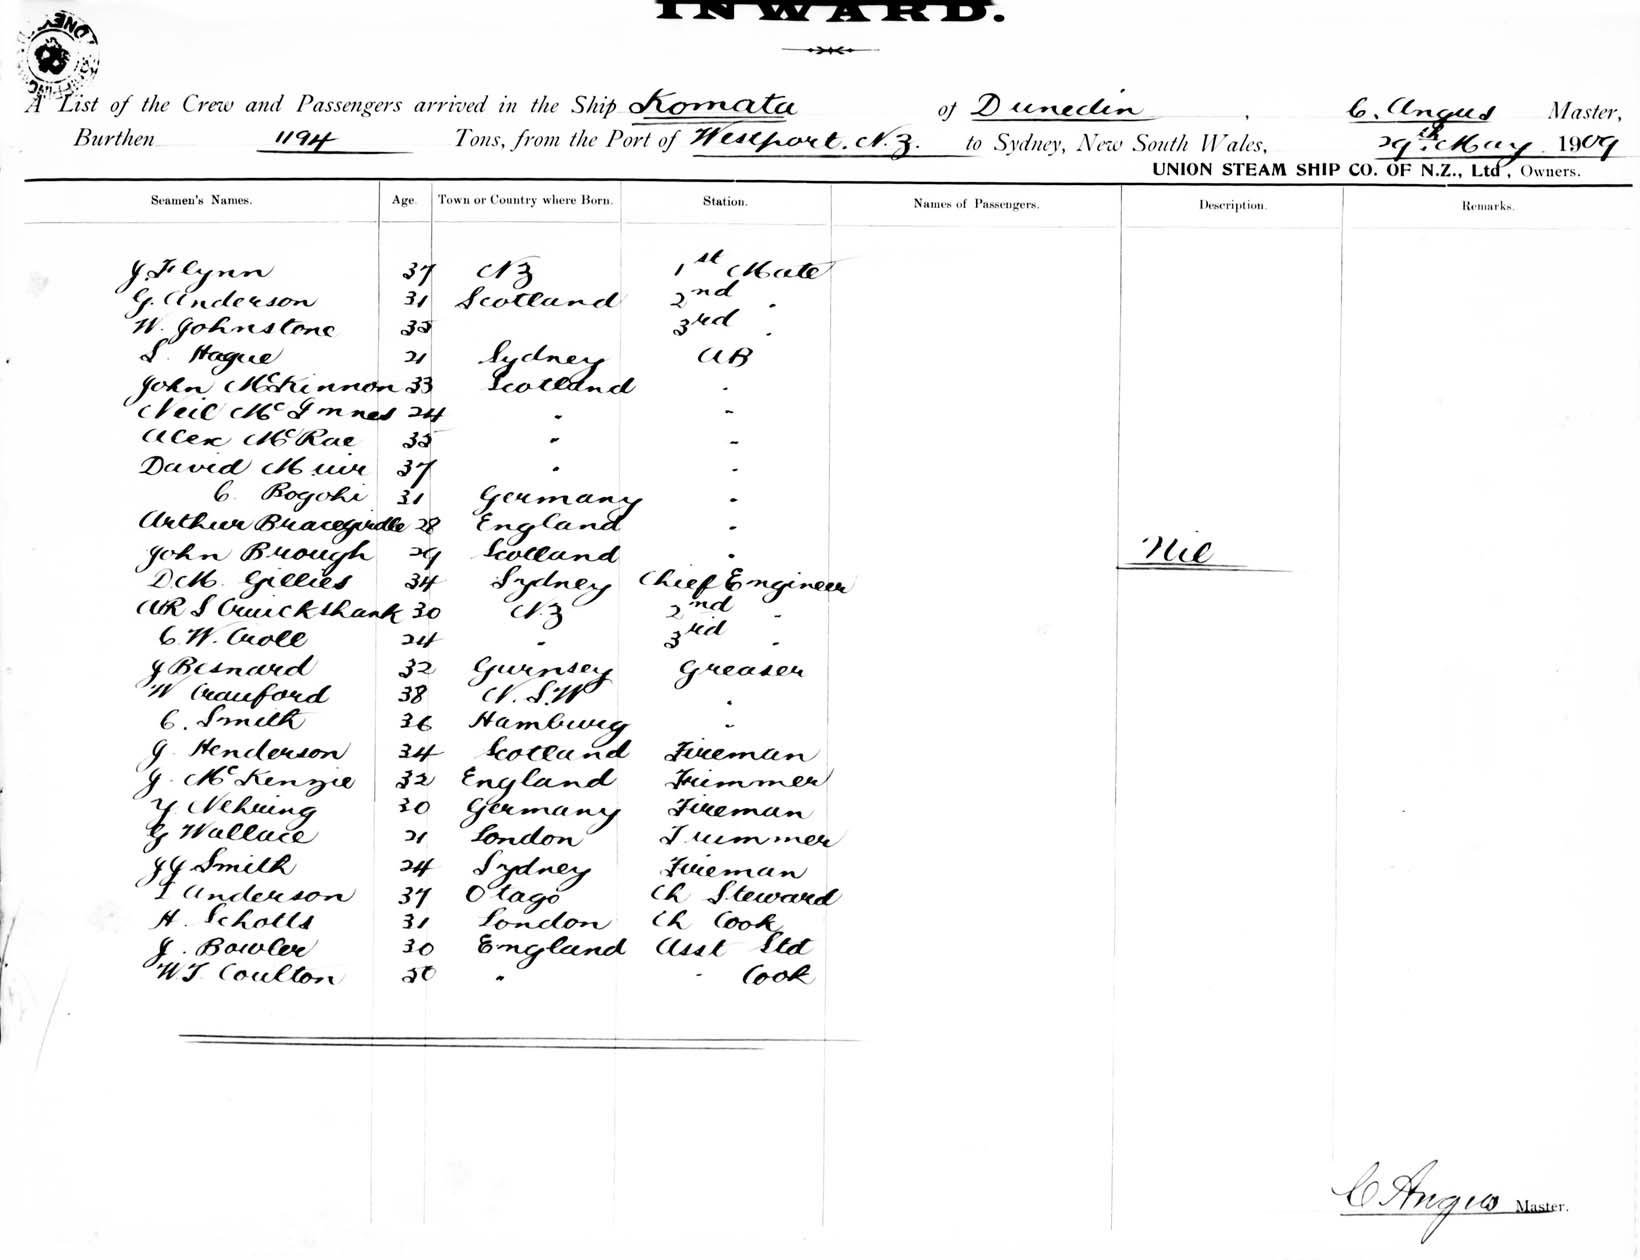 INWARD.
A List of the Crew and Passengers arrived in the Ship Komata of Dunedin, C. Angus Master,
Burthen 1194 Tons, from the Port of Westport. N.Z. to Sydney, New South Wales, 29th May 1909
UNION STEAM SHIP CO. OF N.Z., Ltd, Owners.
Seamen's Names. Age. Town or Country where Born. Station. Names of Passengers. Description. Remarks.
J. Flynn 37 NZ 1st Mate
G. Anderson 31 Scotland 2nd "
W. Johnstone 35 3rd "
S. Hague 21 Sydney AB
John McKinnon 33 Scotland "
Neil McInnes 24 " "
Alex McRae 35 " "
David Muir 37 " "
C. Rogohi 31 Germany "
Arthur Bracegirdle 28 England "
John Brough 29 Scotland " Nil
D.M. Gillies 34 Sydney Chief Engineer
AR S Cruickshank 30 NZ 2nd "
C.W. Croll 24 " 3rd "
J Besnard 32 Gurnsey Greaser
W Crauford 38 N.S.W "
C. Smith 36 Hamburg "
J. Henderson 34 Scotland Fireman
J. McKenzie 32 England Trimmer
Y Nehring 30 Germany Fireman
G Wallace 21 London Trimmer
JJ Smith 24 Sydney Fireman
I Anderson 37 Otago Ch Steward
H. Scholls 31 London Ch Cook
J. Bowler 30 England Asst Std
W.J. Coulton 50 " " Cook
C Angus Master.